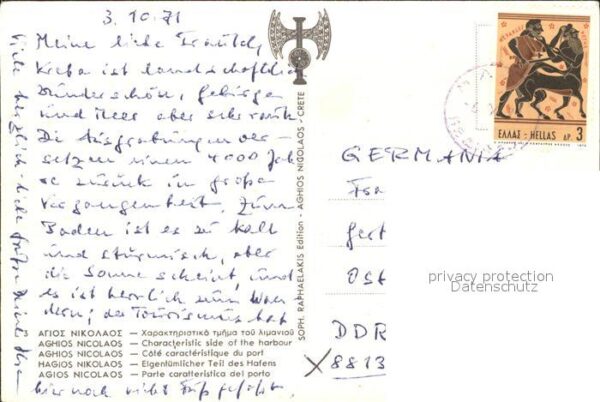 3.10.71
Meine liebe Traudch,
Kreta ist landschaftlich
wunderschön, gebirgig
und Meer aber sehr rauh.
Die Ausgrabungen ver-
setzen einen 4000 Jah-
re zurück in große
Vergangenheit. Zum
Baden ist es zu kalt
und stürmisch, aber
die Sonne scheint, und
es ist herrlich zum Wan-
dern; der Tourismus hat
ΑΓΙΟΣ ΝΙΚΟΛΑΟΣ — Χαρακτηριστικό τμήμα τοῦ λιμανιοῦ
AGHIOS NICOLAOS — Characteristic side of the harbour
AGHIOS NICOLAOS — Côté caractéristique du port
HAGIOS NIKOLAOS — Eigentümlicher Teil des Hafens
AGIOS NICOLAOS — Parte caratteristica del porto
hier noch nicht Fuß gefaßt.
SOPH. RAPHAELAKIS Edition - AGHIOS NIGOLAOS - CRETE
ΕΛΛΑΣ - HELLAS ΔΡ. 3
GERMANIA
Fra
Gert
Ost
DDR
X 8813
privacy protection
Datenschutz